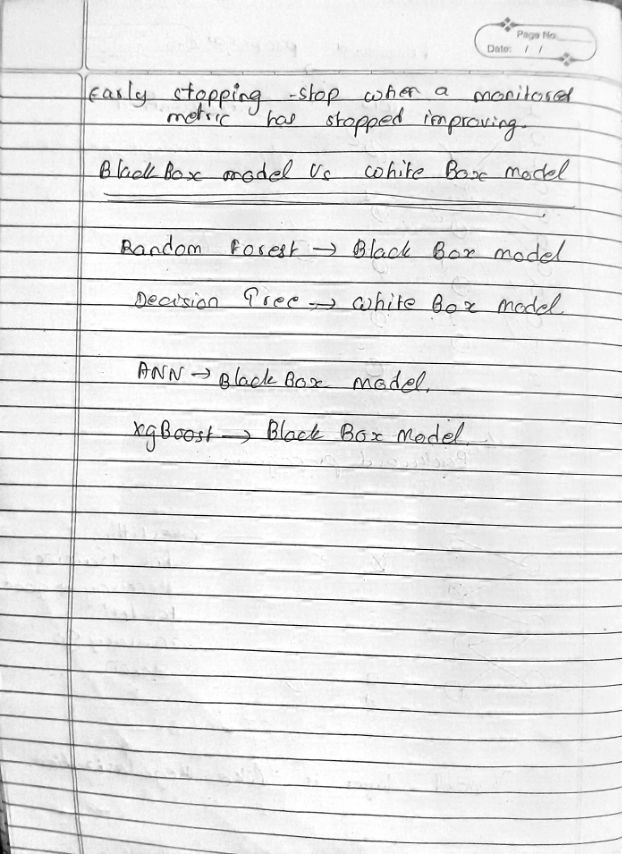 Page No.
Date: / /
Early stopping - stop when a monitored
metric has stopped improving.
Black Box model Vs white Box model
Random Forest → Black Box model
Decision Tree → white Box model
ANN → Black Box model.
XgBoost → Black Box Model.